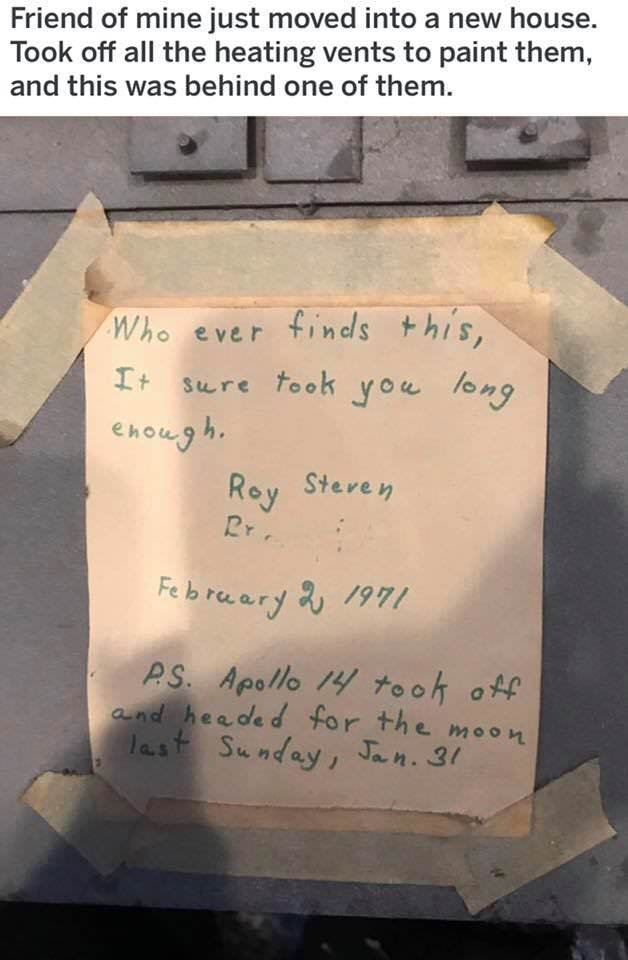 Friend of mine just moved into a new house.
Took off all the heating vents to paint them,
and this was behind one of them.
Who ever finds this,
It sure took you long
enough.
Roy Steven
February 2, 1971
P.S. Apollo 14 took off
and headed for the moon
last Sunday, Jan. 31